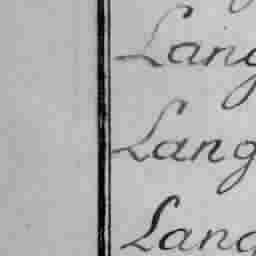 Lang
Lang
Lang